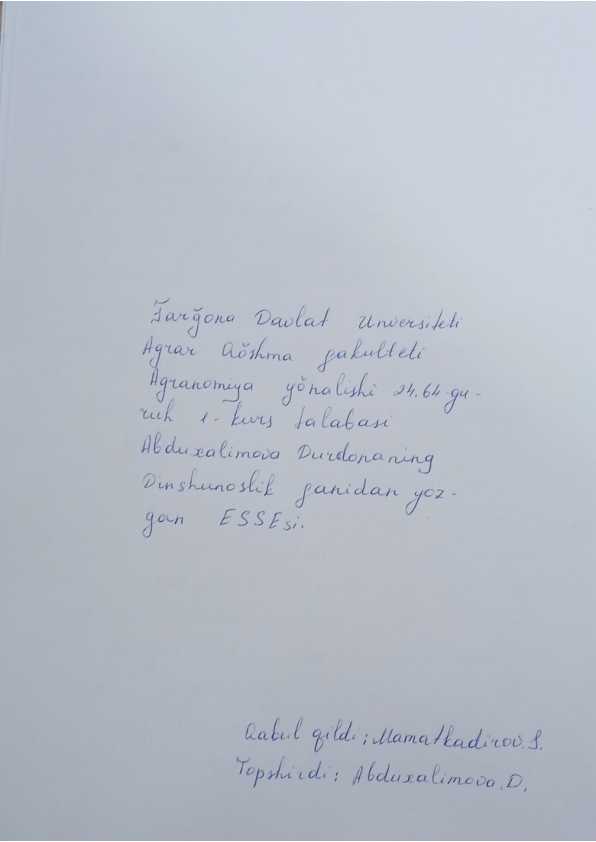 Farğona Davlat Unversiteti
Agrar Qŏshma fakulteti
Agranomiya yŏnalishi 24.64-gu-
ruh 1-kurs talabasi
Abduxalimova Durdonaning
Dinshunoslik fanidan yoz-
gan ESSEsi.
Qabul qildi: Mamatkadirov.S.
Topshirdi: Abduxalimova.D.